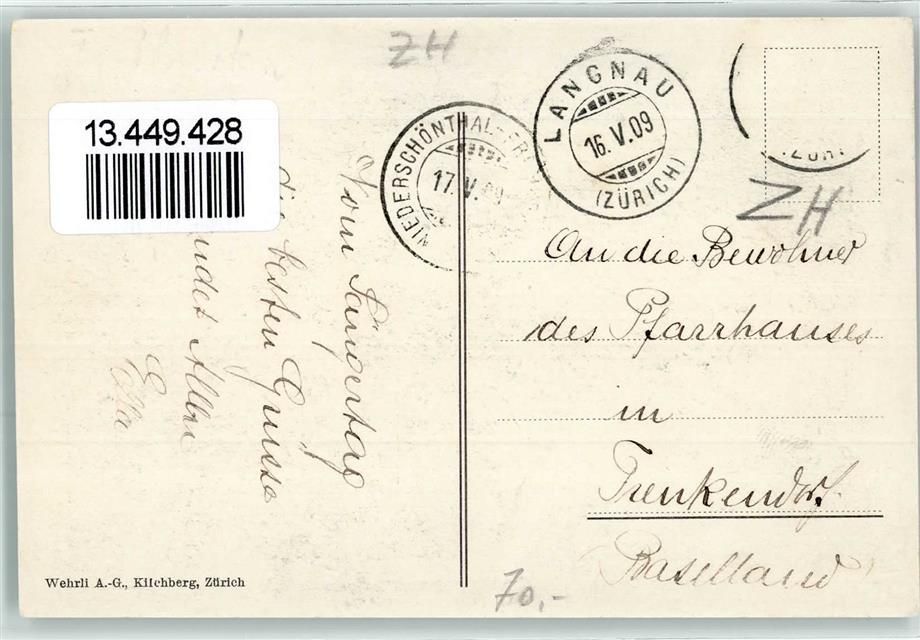 ZH
13.449.428
LANGNAU
16.V.09
(ZÜRICH)
NIEDERSCHÖNTHAL-FR
17.V.09
ZÜRI
ZH
Vom Sängertag
die besten Grüsse
sendet Allen
An die Bewohner
des Pfarrhauses
in
Frenkendorf
Baselland
Wehrli A.-G., Kilchberg, Zürich
70,-